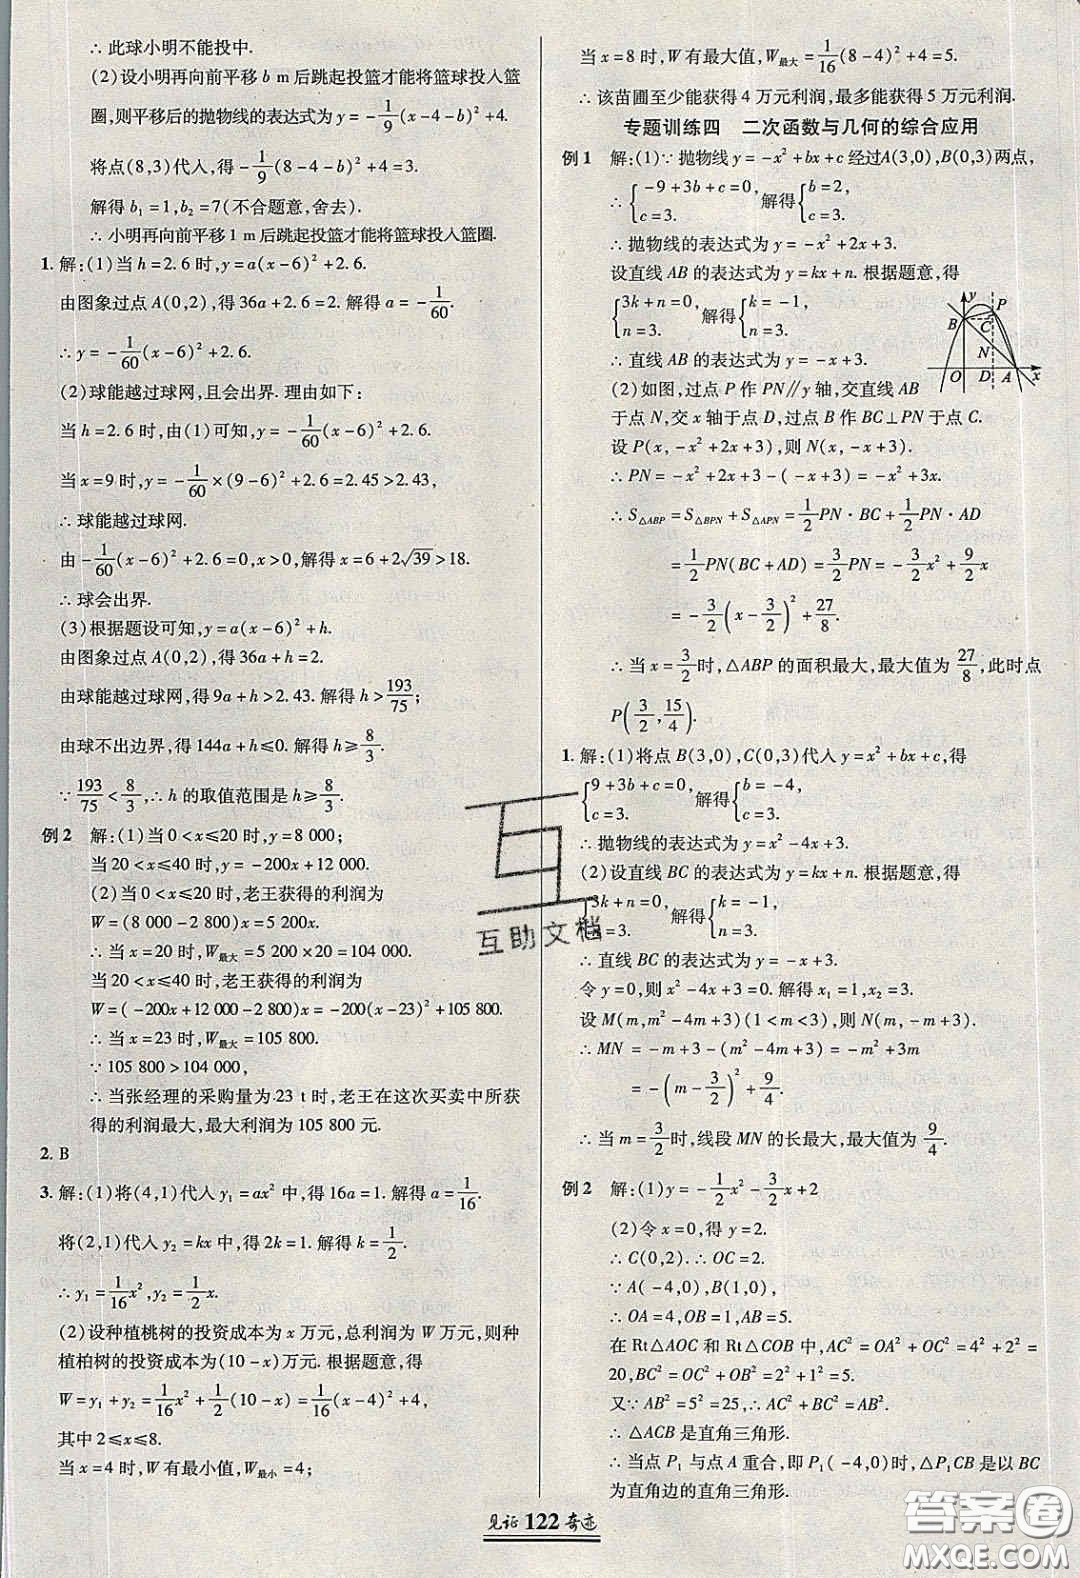 ∴此球小明不能投中.
(2)设小明再向前平移 b m后跳起投篮才能将篮球投入篮
圈,则平移后的抛物线的表达式为 y=-1/9(x-4-b)²+4.
将点(8,3)代入,得-1/9(8-4-b)²+4=3.
解得 b₁=1,b₂=7(不合题意,舍去).
∴小明再向前平移1 m后跳起投篮才能将篮球投入篮圈.
1. 解:(1)当 h=2.6 时,y=a(x-6)²+2.6.
由图象过点 A(0,2),得36a+2.6=2. 解得 a=-1/60.
∴y=-1/60(x-6)²+2.6.
(2)球能越过球网,且会出界. 理由如下:
当 h=2.6 时,由(1)可知,y=-1/60(x-6)²+2.6.
当 x=9 时,y=-1/60×(9-6)²+2.6=2.45>2.43,
∴球能越过球网.
由-1/60(x-6)²+2.6=0,x>0,解得 x=6+2√39>18.
∴球会出界.
(3)根据题设可知,y=a(x-6)²+h.
由图象过点 A(0,2),得36a+h=2.
由球能越过球网,得 9a+h>2.43. 解得 h>193/75;
由球不出边界,得 144a+h≤0. 解得 h≥8/3.
∵193/75<8/3,∴h 的取值范围是 h≥8/3.
例2 解:(1)当 0<x≤20 时,y=8 000;
当 20<x≤40 时,y=-200x+12 000.
(2)当 0<x≤20 时,老王获得的利润为
W=(8 000-2 800)x=5 200x.
∴当 x=20 时,W最大=5 200×20=104 000.
当 20<x≤40 时,老王获得的利润为
W=(-200x+12 000-2 800)x=-200(x-23)²+105 800.
∴当 x=23 时,W最大=105 800.
∵105 800>104 000,
∴当张经理的采购量为 23 t时,老王在这次买卖中所获
得的利润最大,最大利润为 105 800 元.
2. B
3. 解:(1)将(4,1)代入 y₁=ax² 中,得 16a=1. 解得 a=1/16.
将(2,1)代入 y₂=kx 中,得 2k=1. 解得 k=1/2.
∴y₁=1/16x²,y₂=1/2x.
(2)设种植桃树的投资成本为 x 万元,总利润为 W 万元,则种
植柏树的投资成本为(10-x)万元. 根据题意,得
W=y₁+y₂=1/16x²+1/2(10-x)=1/16(x-4)²+4,
其中 2≤x≤8.
当 x=4 时,W 有最小值,W最小=4;
当 x=8 时,W 有最大值,W最大=1/16(8-4)²+4=5.
∴该苗圃至少能获得 4 万元利润,最多能获得 5 万元利润.
专题训练四 二次函数与几何的综合应用
例1 解:(1)∵抛物线 y=-x²+bx+c 经过A(3,0),B(0,3)两点,
∴{-9+3b+c=0, c=3. 解得{b=2, c=3.
∴抛物线的表达式为 y=-x²+2x+3.
设直线 AB 的表达式为 y=kx+n. 根据题意,得
{3k+n=0, n=3. 解得{k=-1, n=3.
∴直线 AB 的表达式为 y=-x+3.
y P B C N O D A x
(2)如图,过点 P 作 PN∥y 轴,交直线 AB
于点 N,交 x 轴于点 D,过点 B 作 BC⊥PN 于点 C.
设 P(x,-x²+2x+3),则 N(x,-x+3).
∴PN=-x²+2x+3-(-x+3)=-x²+3x.
∴S△ABP=S△BPN+S△APN=1/2PN·BC+1/2PN·AD
=1/2PN(BC+AD)=3/2PN=-3/2x²+9/2x
=-3/2(x-3/2)²+27/8.
∴当 x=3/2时,△ABP 的面积最大,最大值为27/8,此时点
P(3/2,15/4).
1. 解:(1)将点 B(3,0),C(0,3)代入 y=x²+bx+c,得
{9+3b+c=0, c=3. 解得{b=-4, c=3.
∴抛物线的表达式为 y=x²-4x+3.
(2)设直线 BC 的表达式为 y=kx+n. 根据题意,得
{3k+n=0, n=3. 解得{k=-1, n=3.
∴直线 BC 的表达式为 y=-x+3.
令 y=0,则 x²-4x+3=0. 解得 x₁=1,x₂=3.
设 M(m,m²-4m+3)(1<m<3),则 N(m,-m+3).
∴MN=-m+3-(m²-4m+3)=-m²+3m
=-(m-3/2)²+9/4.
∴当 m=3/2时,线段 MN 的长最大,最大值为9/4.
例2 解:(1)y=-1/2x²-3/2x+2
(2)令 x=0,得 y=2.
∴C(0,2).∴OC=2.
∵A(-4,0),B(1,0),
∴OA=4,OB=1,AB=5.
在 Rt△AOC 和 Rt△COB 中,AC²=OA²+OC²=4²+2²=
20,BC²=OC²+OB²=2²+1²=5.
又∵AB²=5²=25,∴AC²+BC²=AB².
∴△ACB 是直角三角形.
∴当点 P₁ 与点 A 重合,即 P₁(-4,0)时,△P₁CB 是以 BC
为直角边的直角三角形.
见证 122 奇迹
互助文档
答案圈
MXQE.COM